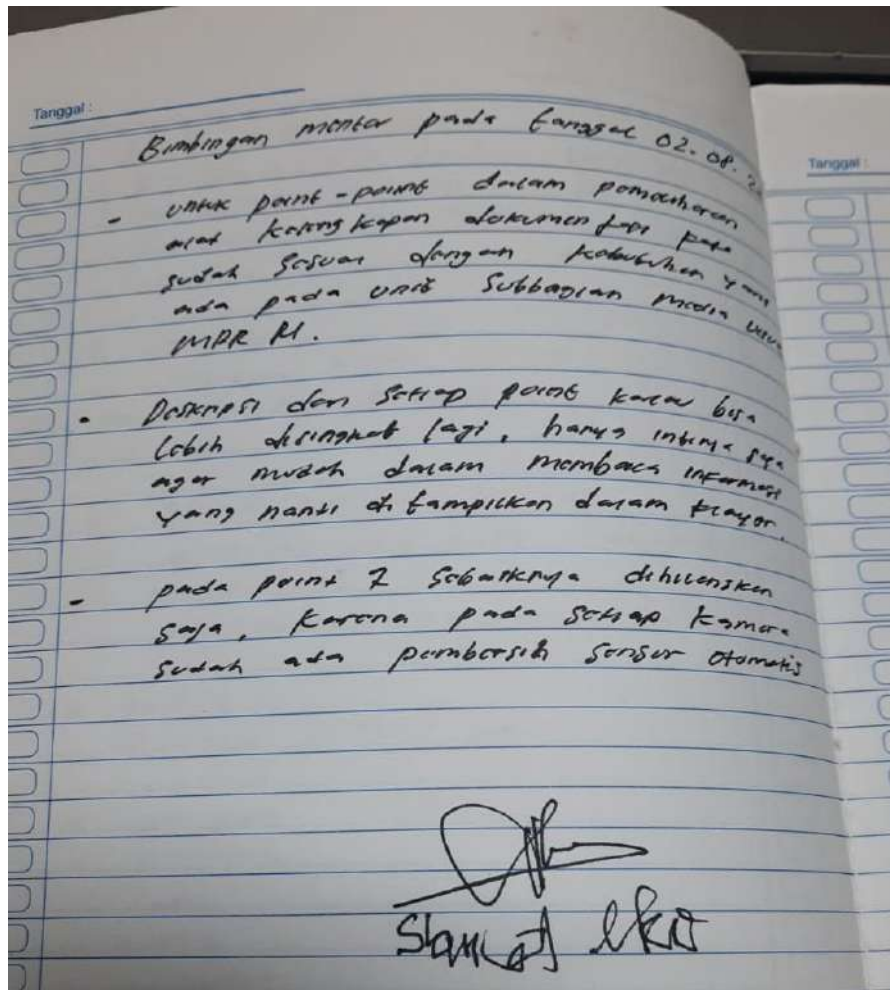 Tanggal :
Bimbingan mentor pada tanggal 02.08.
Tanggal :
- untuk point-point dalam pemeliharaan
alat kelengkapan dokumentasi pada
sudah sesuai dengan kebutuhan yang
ada pada unit Subbagian media
MPR RI.
- Deskripsi dari setiap point kalau bisa
lebih disingkat lagi, hanya intinya saja
agar mudah dalam membaca informasi
yang nanti di tampilkan dalam
- pada point 7 sebaiknya dihilangkan
saja, karena pada setiap kamera
sudah ada pembersih sensor otomatis
Slamet